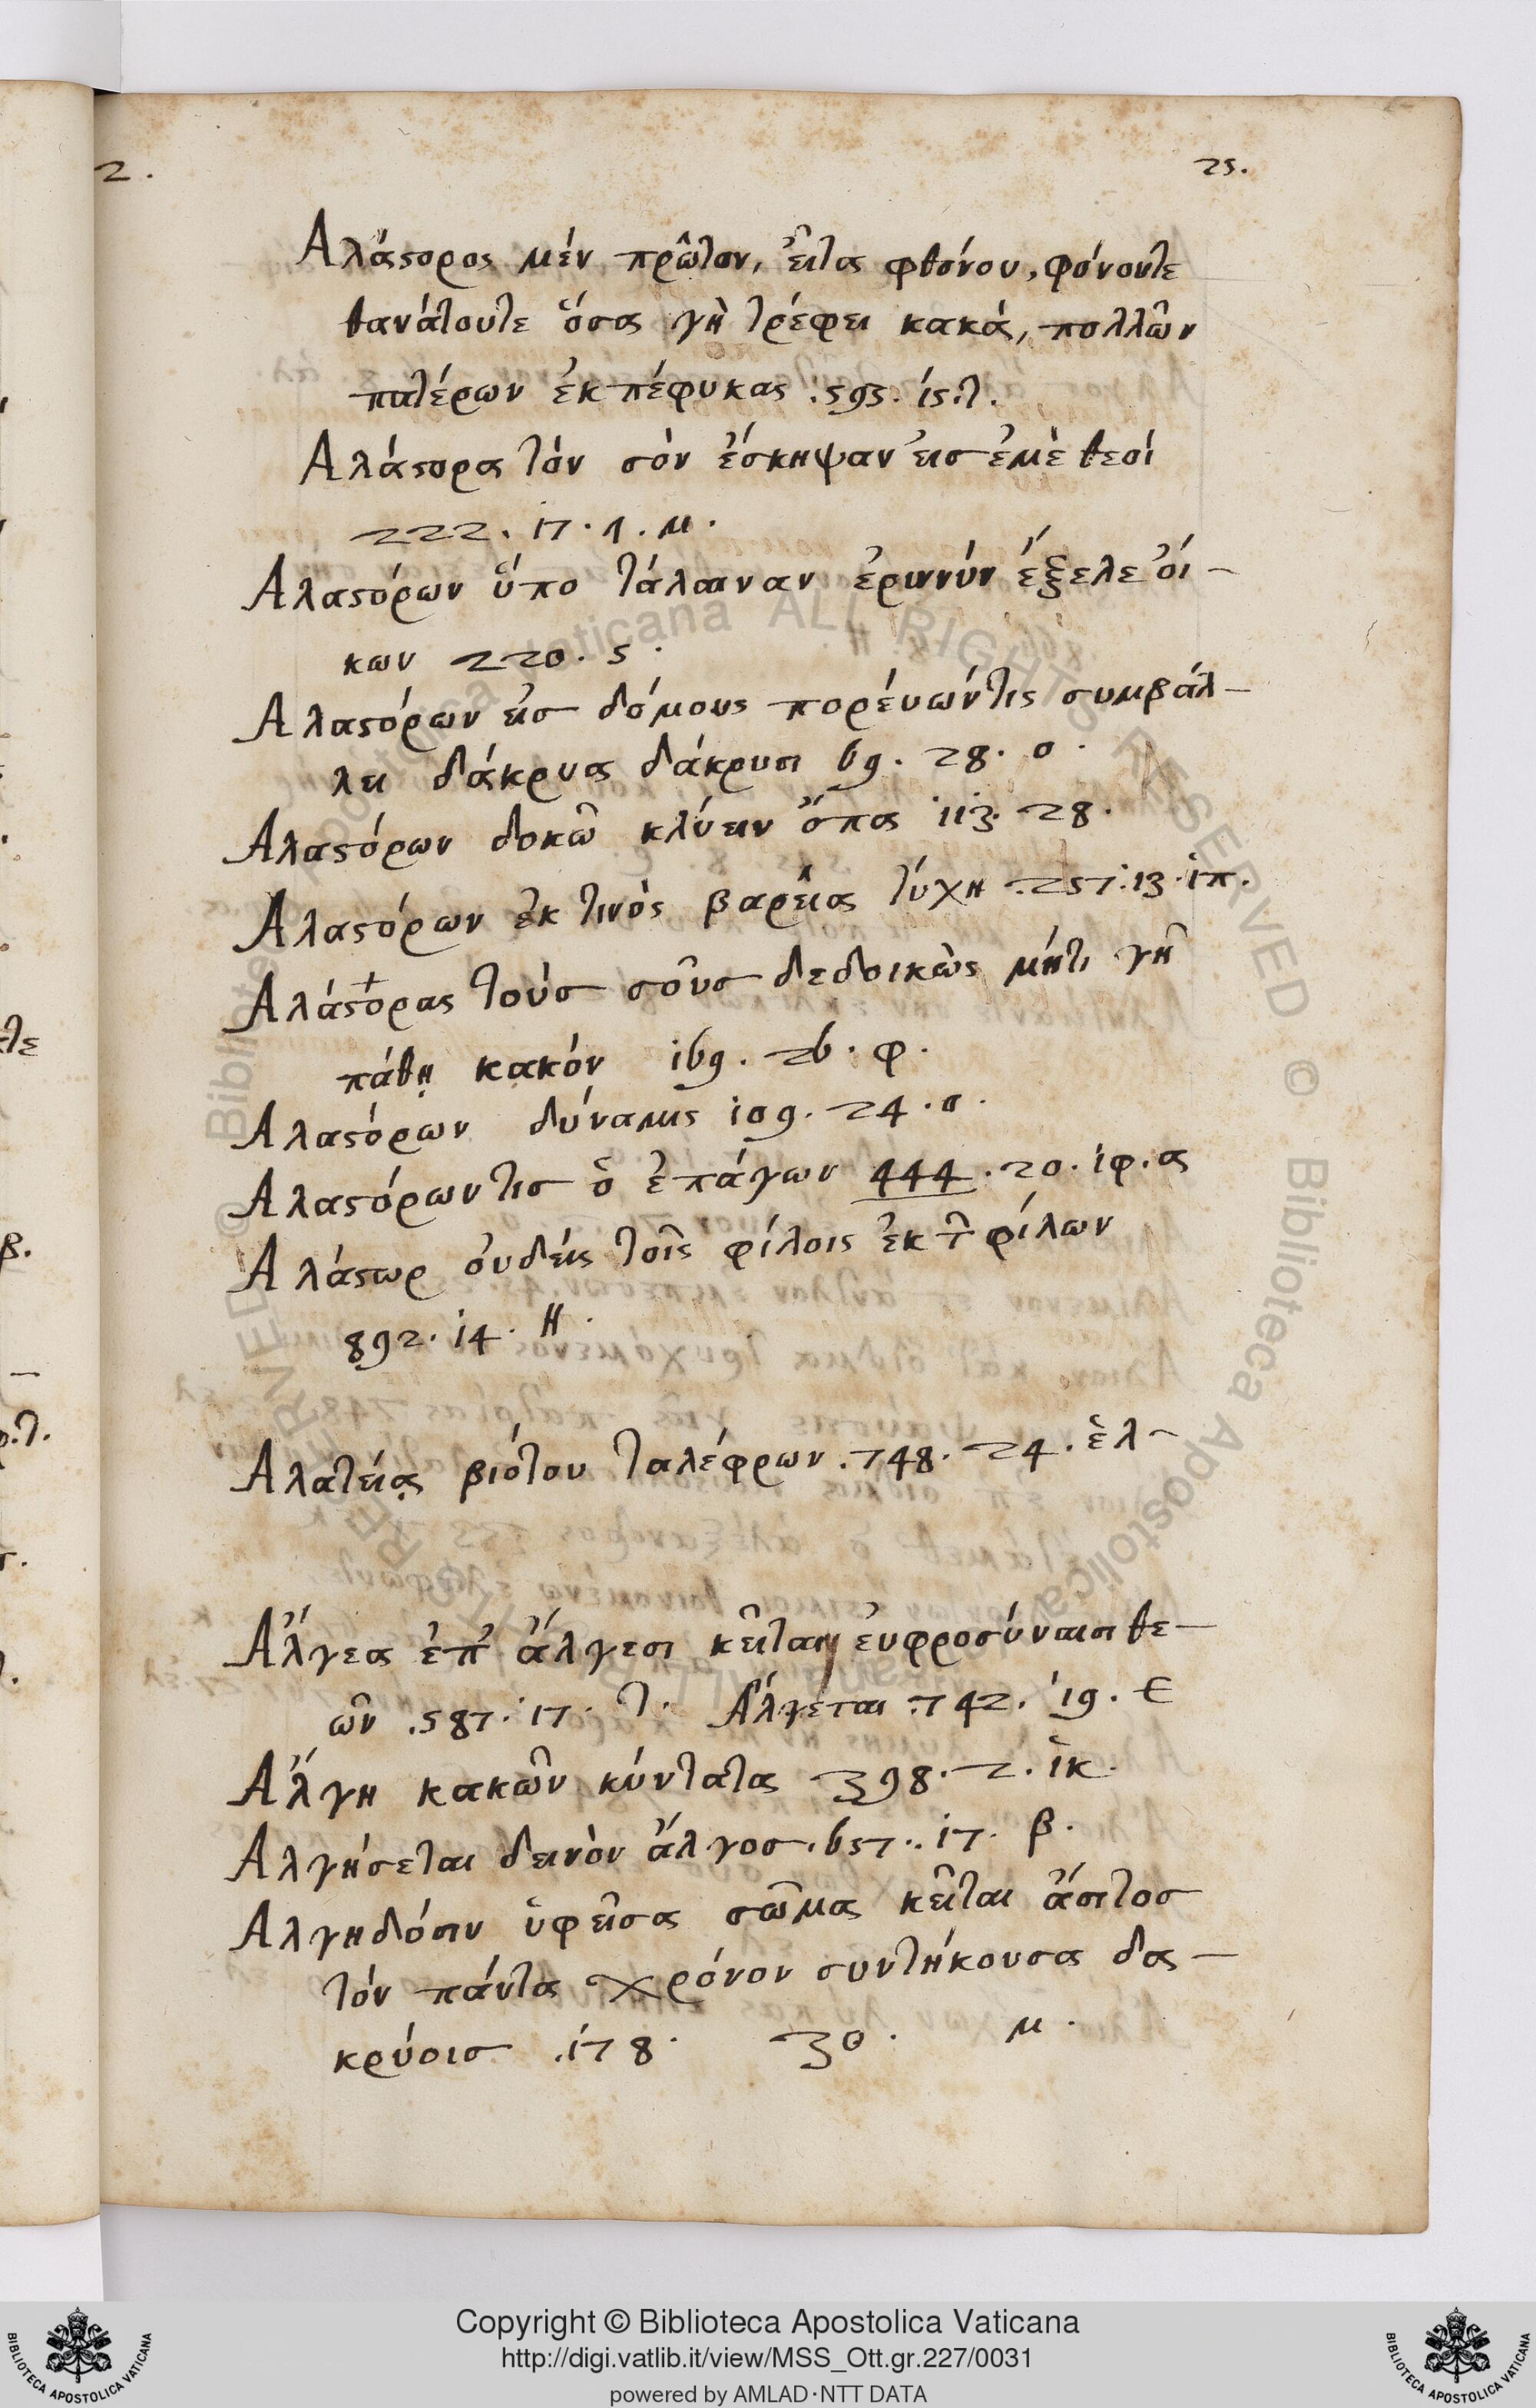 2.
25.
Αλάϛορος μέν πρῶτον, ἔιτα φθόνου, φόνουτε
θανάτουτε ὅσα γῆ τρέφει κακά, πολλῶν
πατέρων ἐκπέφυκας .593. ί5.τ.
Αλάϛορα τόν σόν ἔσκηψαν ἐισ ἐμὲ θεοί
222. ί7. 1. μ.
Αλαϛόρων ὕπο τάλαιναν ἐριννύν ἔξελε ὄι-
κων 220. 5.
Αλαϛόρων ἐισ δόμους πορέυων τις συμβάλ-
λει δάκρυα δάκρυσι 69. 28. ο.
Αλαϛόρων δοκῶ κλύειν ὄπα ίί3. 28.
Αλαϛόρων ἐκ τινὸς βαρεῖα τύχη .257. ί3. ἱπ.
Αλάϛορας τούσ σοῦσ δεδοικὼς μήτι γῆ
πάθῃ κακόν ί69. 26. φ.
Αλαϛόρων δύναμις ί09. 24. ο.
Αλαϛόρων τισ ὁ ἐπάγων 444. 20. ἰφ. α
Αλάϛωρ ὀυδέις τοῖς φίλοις ἐκ τ φίλων
892. ί4. Η.
Αλατείᾳ βιότου ταλέφρων .748. 24. ἑλ-
Αλγεα ἐπ' ἄλγεσι κεῖται ἐυφροσύναισι θε-
ῶν .587. ί7. τ. Αλγεται .742. ί9. ε
Αλγη κακῶν κύντατα 398. 2. ἱκ.
Αλγήσεται δεινὸν ἄλγοσ. 657. ί7. β.
Αλγηδόσιν ὑφεῖσα σῶμα κεῖται ἄσιτοσ
τόν πάντα χρόνον συντήκουσα δα-
κρύοισ .ί78. 30. μ.
Copyright © Biblioteca Apostolica Vaticana
http://digi.vatlib.it/view/MSS_Ott.gr.227/0031
powered by AMLAD·NTT DATA